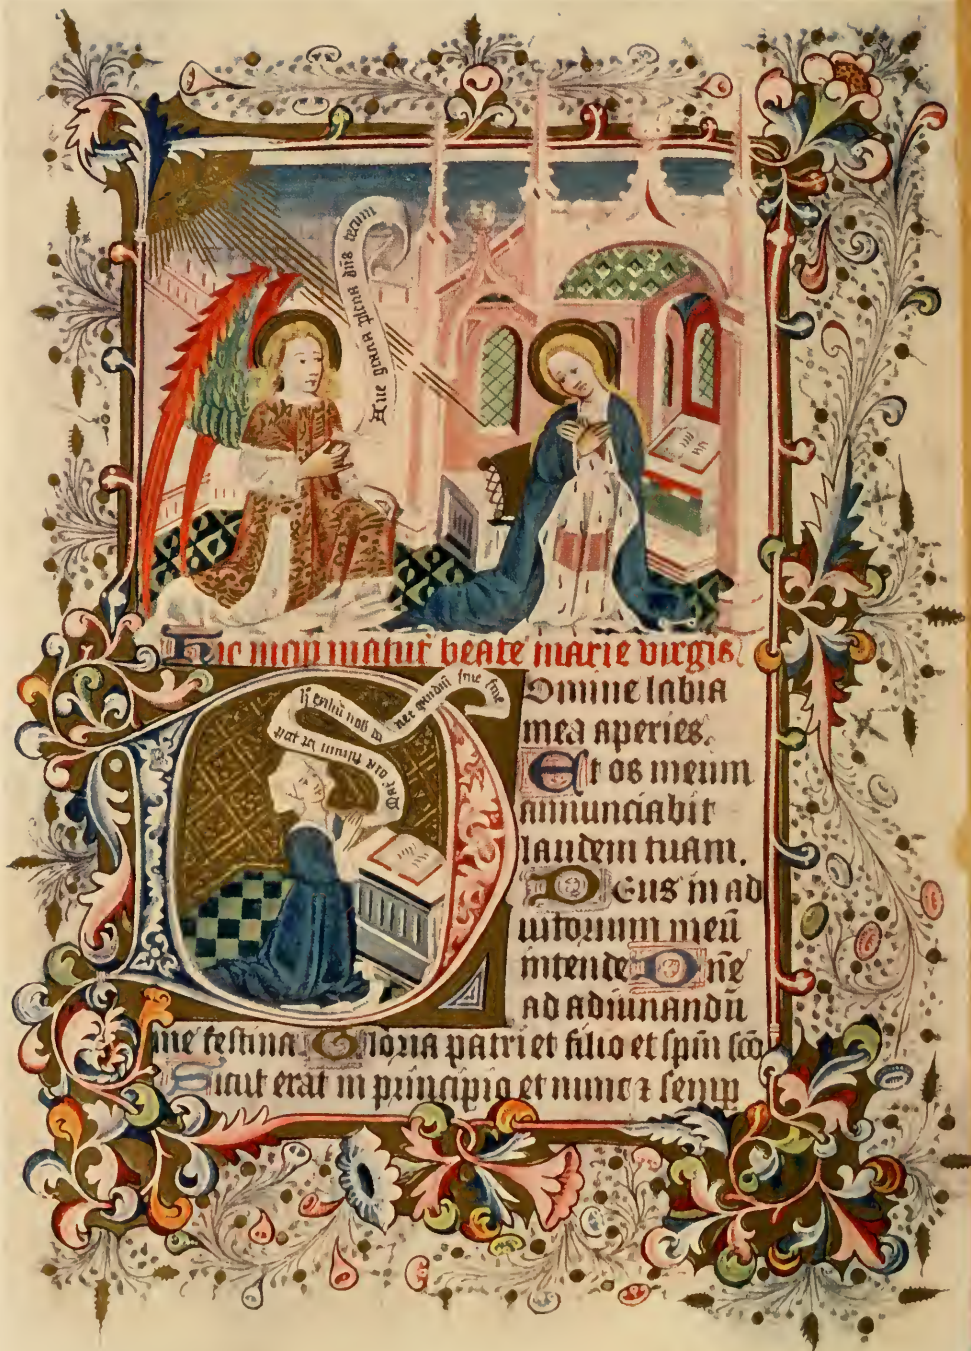 Aue gracia plena dn̄s tecum
Hic incip̄ matut̄ beate marie virgis
Domine labia
mea aperies.
Et os meum
annunciabit
laudem tuam.
Deus in ad
iutorium meū
intende Dn̄e
ad adiuuandū
me festina Gloria patri et filio et sp̄m sc̄o
Sicut erat in principio et nunc ⁊ semp̄